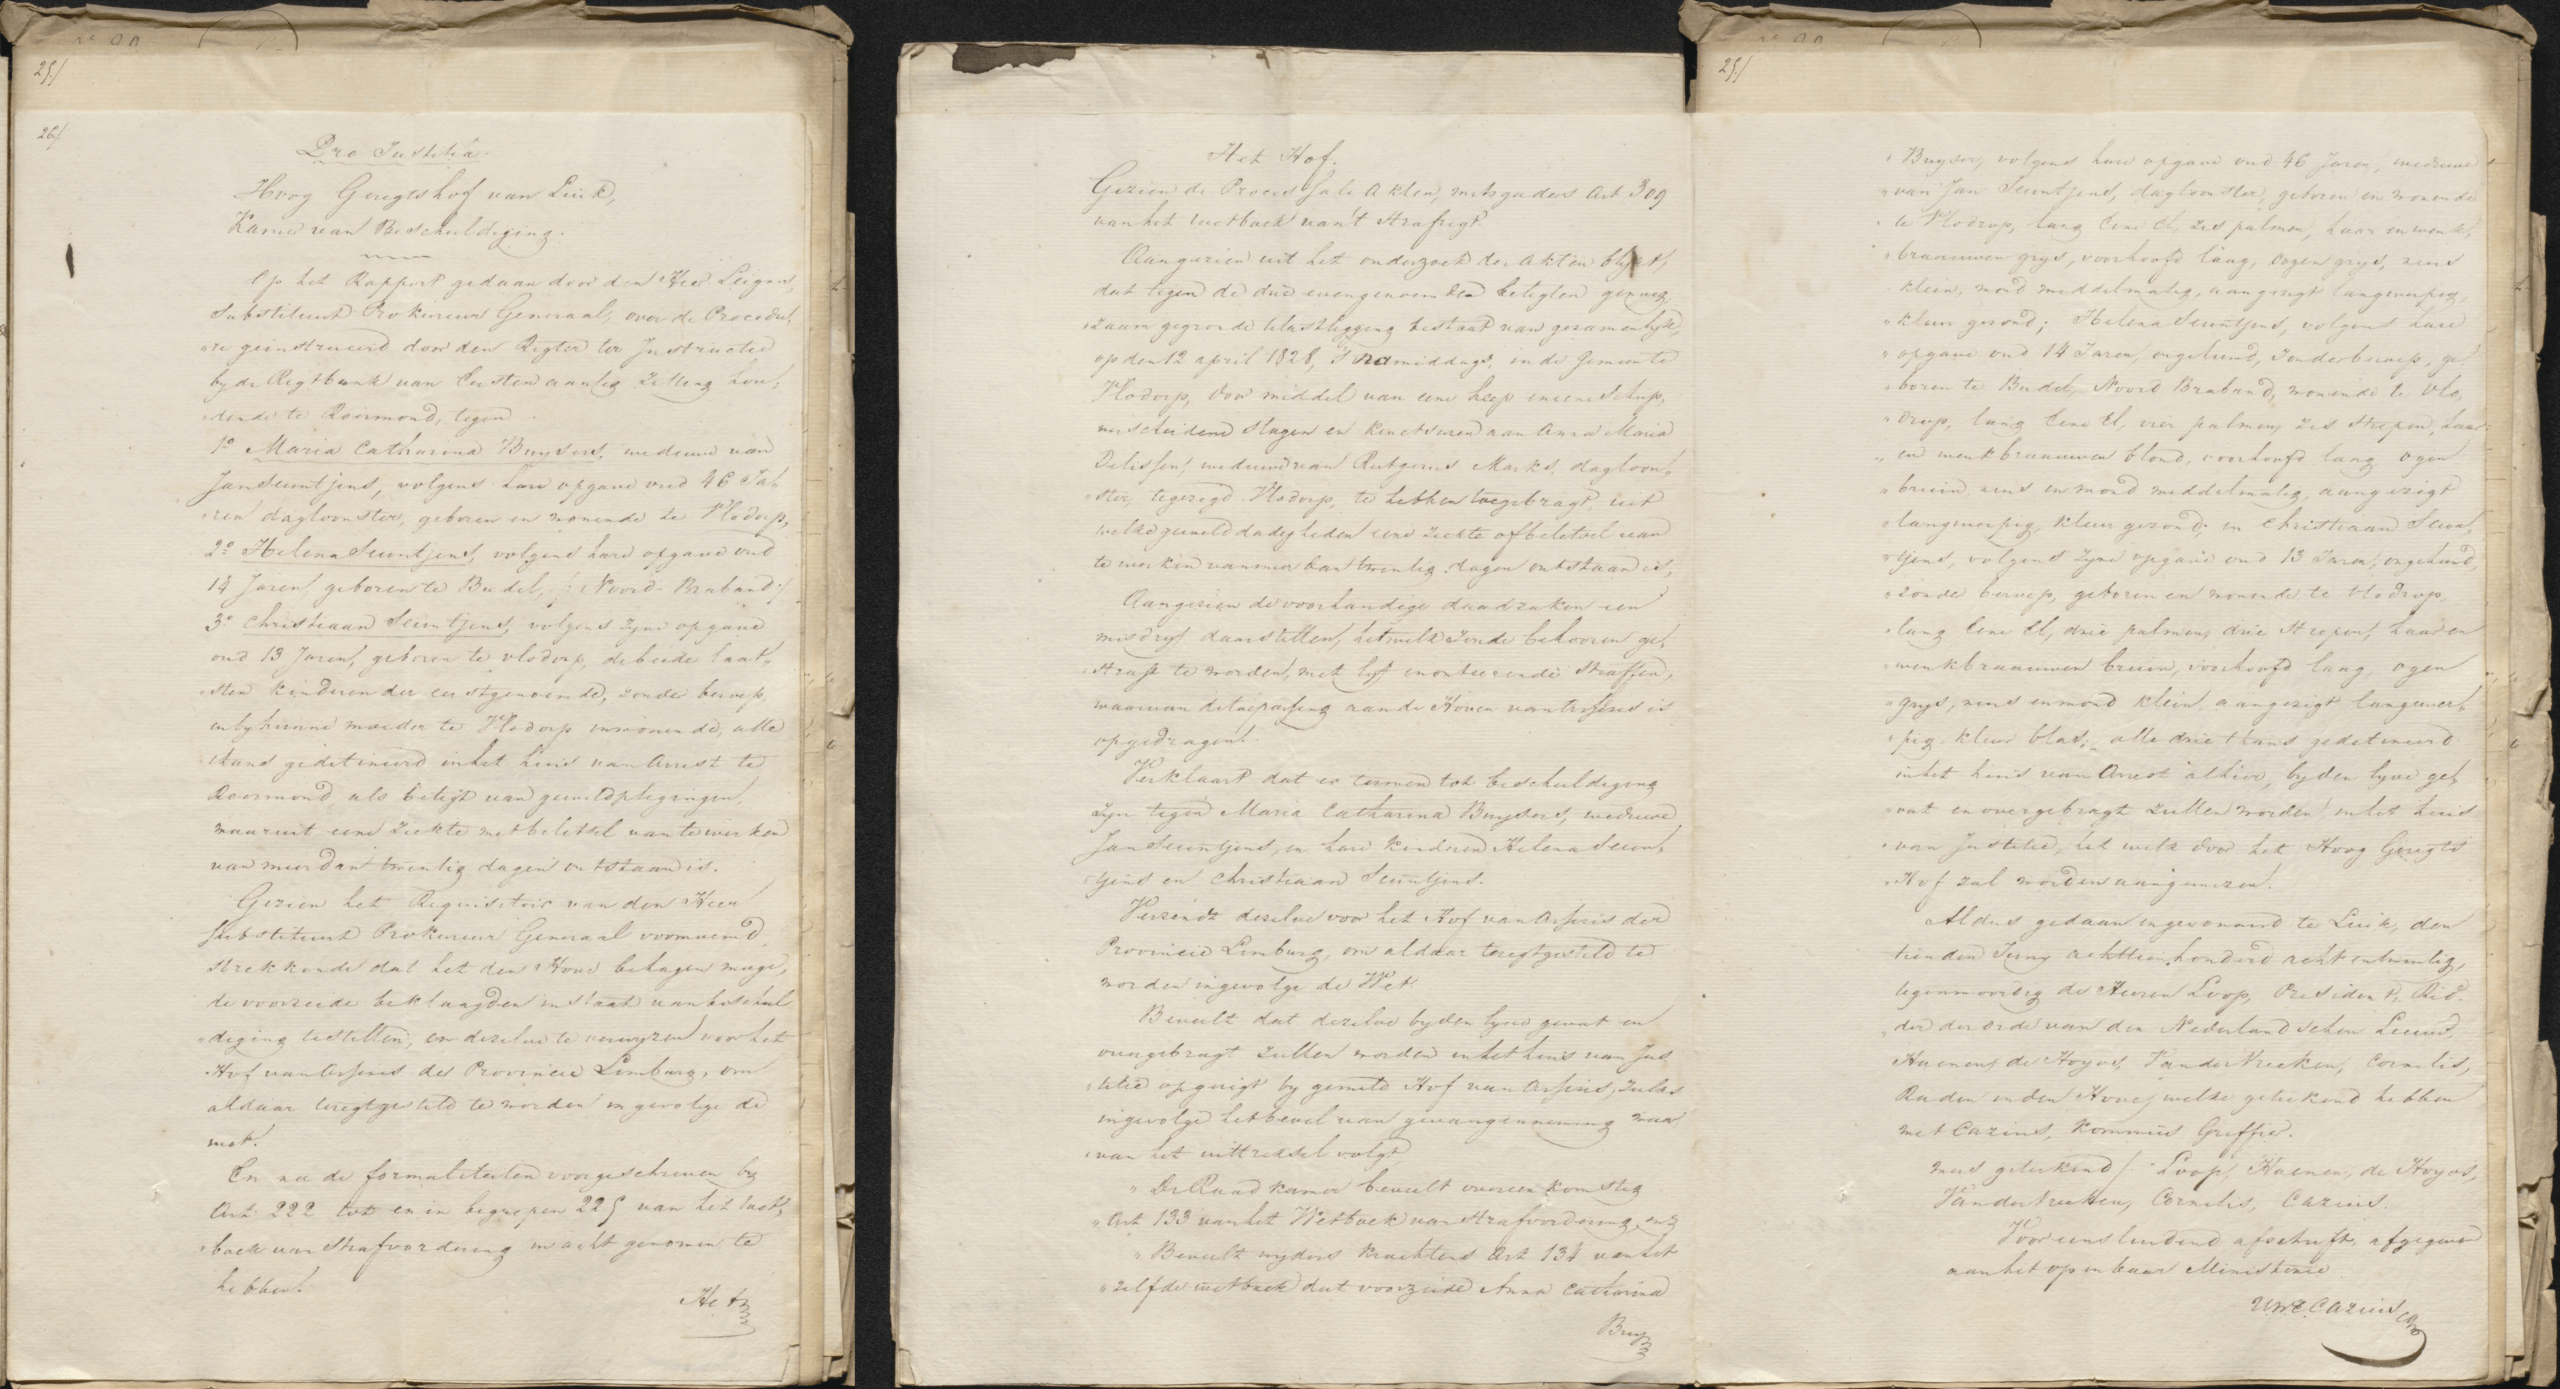 25/
26/.
Pro Justitia.
Hoog Geregtshof van Luik,
Kamer van Beschuldiging.
Op het Rapport gedaan door den Heer Leigens,
Substituut Prokureur Generaal, over de Procedu„
„re geinstrueerd door den Regter ter Instructie
by de Regtbank van Eersten aanleg zitting hou„
„dende te Roermond, tegen
1o Maria Catharina Buysers, weduwe van
Jan Seuntjens, volgens hare opgave oud 46 Ja„
„ren dagloonster, geboren en wonende te Vlodorp,
2o Helena Seuntjens, volgens hare opgave oud
14 Jaren, geboren te Budel, /: Noord-Braband :/
3o Christiaan Seuntjens, volgens zyne opgave
oud 13 Jaren, geboren te Vlodorp, de beide laat„
„sten kinderen der eerstgenoemde, zonder beroep,
en by hunne moeder te Vlodorp inwonende, alle
thans gedetineerd in het huis van Arrest te
Roermond, als betigt van geweldplegingen,
waaruit eene ziekte met beletsel van te werken
van meer dan twentig dagen ontstaan is.
Gezien het Requisitoir van den Heer
Substituut Prokureur Generaal voornoemd,
strekkende dat het den Hove behagen moge,
de voorzeide beklaagden in staat van beschul
„diging te stellen, en dezelve te verwyzen voor het
Hof van Assises der Provincie Limburg, om
aldaar teregtgesteld te worden ingevolge de
wet.
En na de formaliteiten voorgeschreven by
Art: 222 tot en in begrepen 225 van het wet„
„boek van Strafvordering in acht genomen te
hebben.
Het
Het Hof.
Gezien de Processale Akten, mitsgaders Art 309
van het wetboek van 't Strafregt.
Aangezien uit het onderzoek der akten blykt,
dat tegen de drie evengenoemden betigten genoeg„
„zaam gegronde telastlegging bestaat van gezamentlyk,
op den 12 april 1828, 's namiddags, in de gemeente
Vlodorp, door middel van eene heep en eene schup,
verscheidene slagen en kwetsuren aan Anna Maria
Delissen, weduwe van Rutgerus Marks, dagloon„
„ster, tegezegd Vlodorp, te hebben toegebragt, uit
welke gemelde dadigheden eene ziekte of beletsel van
te werken van meer dan twentig dagen ontstaan is,
Aangezien de voorhandige daadzaken een
misdryf daarstellen, hetwelk zoude behooren ge„
„straft te worden, met lyf en onteerende straffen,
waarvan de toepassing aan de Hoven van Assises is
opgedragen.
Verklaart dat er termen tot beschuldiging
zyn tegen Maria Catharina Buysers, weduwe
Jan Seuntjens, en hare kinderen Helena Seun„
„tjens en Christiaan Seuntjens.
Verzendt dezelve voor het Hof van Assises der
Provincie Limburg, om aldaar teregtgesteld te
worden ingevolge de Wet.
Beveelt dat dezelve by den lyve gevat en
overgebragt zullen worden in het huis van Jus
„titie opgerigt by gemeld Hof van Assises, zulks
ingevolge het bevel van gevangenneming waar
„van het uittreksel volgt
„ De Raadkamer beveelt overeenkomstig
„ Art 133 van het Wetboek van Strafvordering, enz
„ Beveelt wyders krachtens Art 134 van het
„ zelfde wetboek dat voorzeide Anna Catharina
Buy
25/
„ Buysers, volgens hare opgave oud 46 Jaren, weduwe
„ van Jan Seuntjens, dagloonster, geboren en wonende
„ te Vlodrop, lang Eene El, zes palmen, haar en wenk„
„ braauwen grys, voorhoofd laag, oogen grys, neus
klein, mond middelmatig, aangezigt langwerpig,
„ kleur gezond; Helena Seuntjens, volgens hare
„ opgave oud 14 Jaren, ongehuwd, zonder beroep, ge„
„ boren te Budel, Noord Braband, wonende te Vlo„
„ drop, lang Eene El, vier palmen, zes strepen, haar
„ en wenkbraauwen blond, voorhoofd laag, ogen
„ bruin, neus en mond middelmatig, aangezigt
„ langwerpig, kleur gezond; en Christiaan Seun„
„ tjens, volgens zyne opgave oud 13 Jaren, ongehuwd,
„ zonder beroep, geboren en wonende te Vlodrop,
„ lang Eene El, drie palmen, drie strepen, haar en
„ wenkbraauwen bruin, voorhoofd laag, ogen
„ grys, neus en mond klein, aangezigt langwer„
„ pig, kleur blas; alle drie thans gedetineerd
in het huis van Arrest alhier, by den lyve ge„
„ vat en overgebragt zullen worden in het huis
„ van Justitie, het welk door het Hoog Geregts
„ Hof zal worden aangewezen.
Aldus gedaan en gevonnisd te Luik, den
tienden Juny achttienhonderd acht en twentig,
tegenwoordig de Heeren Loop, President, Rid„
„der der Orde van den Nederlandschen Leeuw,
Haenen, de Hoyos, VanderVrecken, Cornelis,
Raden in den Hove, welke geteekend hebben
met Cazius, Kommis Griffier.
was geteekend /: Loop, Haenen, de Hoyos,
VanderVrecken, Cornelis, Cazius.
Voor eensluidend afschrift, afgegeven
aan het openbaar Ministerie
Cazius